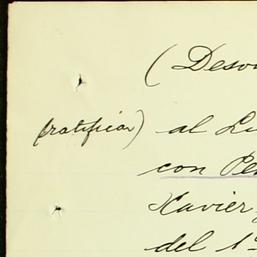 (Desov
(ratificar) al Lu
con Pe
Xavier
del 1º